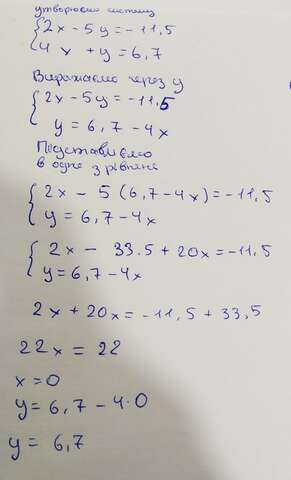 утворюємо систему
2x - 5y = -11,5
4x + y = 6,7
Виражаємо через y
2x - 5y = -11,5
y = 6,7 - 4x
Підставляємо
в одне з рівнянь
2x - 5(6,7 - 4x) = -11,5
y = 6,7 - 4x
2x - 33.5 + 20x = -11,5
y = 6,7 - 4x
2x + 20x = -11,5 + 33,5
22x = 22
x = 0
y = 6,7 - 4·0
y = 6,7